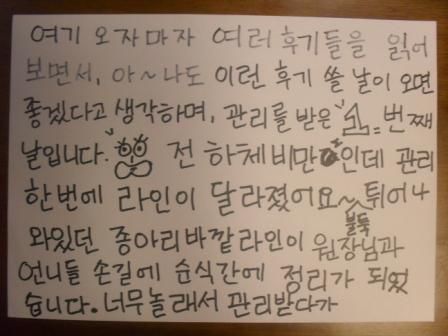 여기 오자마자 여러 후기들을 읽어
보면서, 아~ 나도 이런 후기 쓸 날이 오면
좋겠다고 생각하며, 관리를 받은 "1"번째
날입니다. 전 하체비만인데 관리
한번에 라인이 달라졌어요~ 튀어나
와있던 종아리바깥라인이 불뚝 원장님과
언니들 손길에 순식간에 정리가 되었
습니다. 너무놀래서 관리받다가